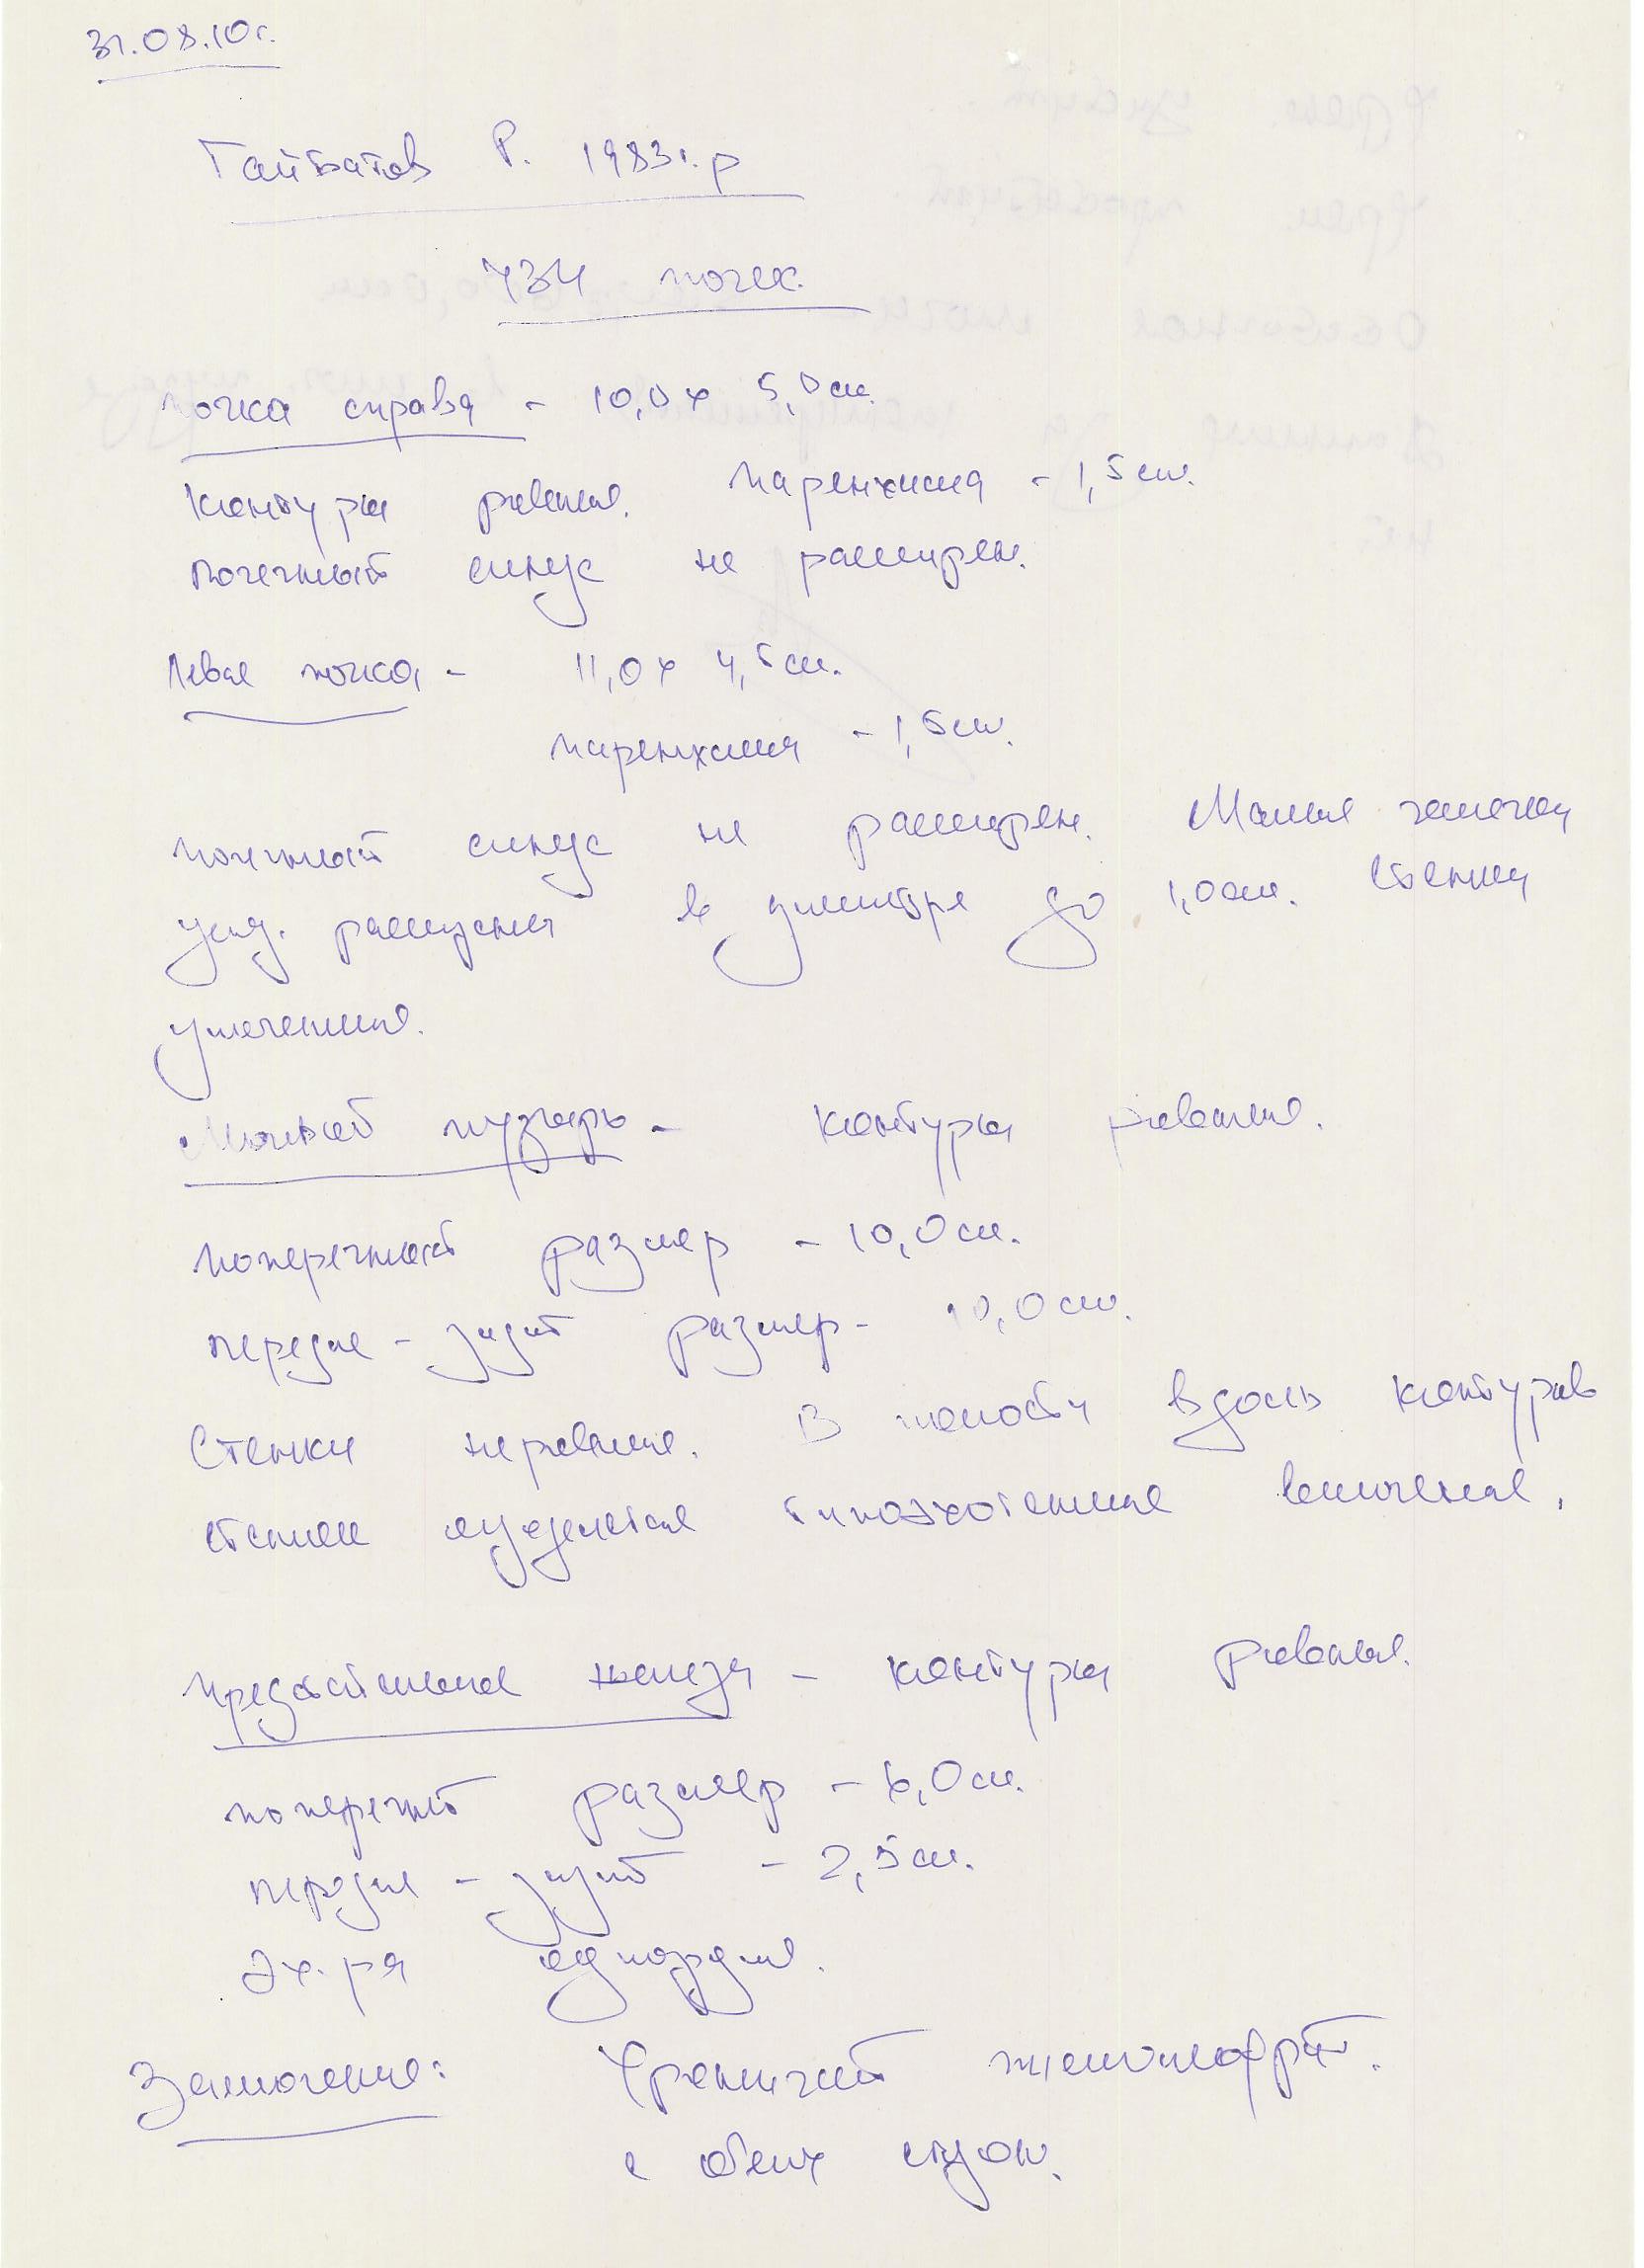 31.08.10г.
Гайбатов Р. 1983г.р
УЗИ почек.
Почка справа - 10,0 х 5,0 см.
Контуры ровные. Паренхима - 1,5 см.
Почечный синус не расширен.
Левая почка - 11,0 х 4,5 см.
паренхима - 1,5 см.
Почечный синус не расширен. Малые чашечки
расширены в диаметре до 1,0 см. Стенки
уплотнены.
Мочевой пузырь - контуры ровные.
поперечный размер - 10,0 см.
передне-задний размер - 10,0 см.
Стенки неровные. В полости вдоль контуров
стенок гипоэхогенные включения.
Предстательная железа - контуры ровные.
поперечный размер - 6,0 см.
передне-задний - 2,5 см.
Эх. ра однородная.
Заключение: Хронический пиелонефрит.
с обеих сторон.